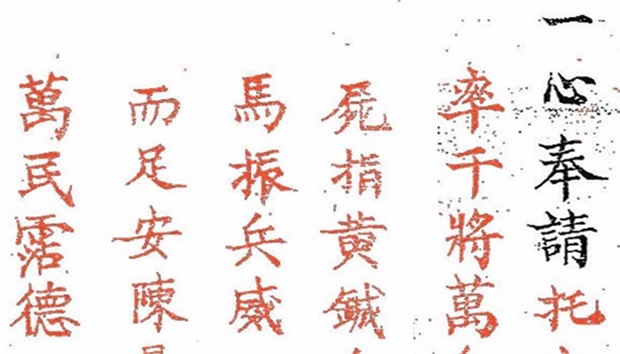 一心奉請托
率千將萬
指黃鉞
馬振兵威
而足安陳
萬民霑德